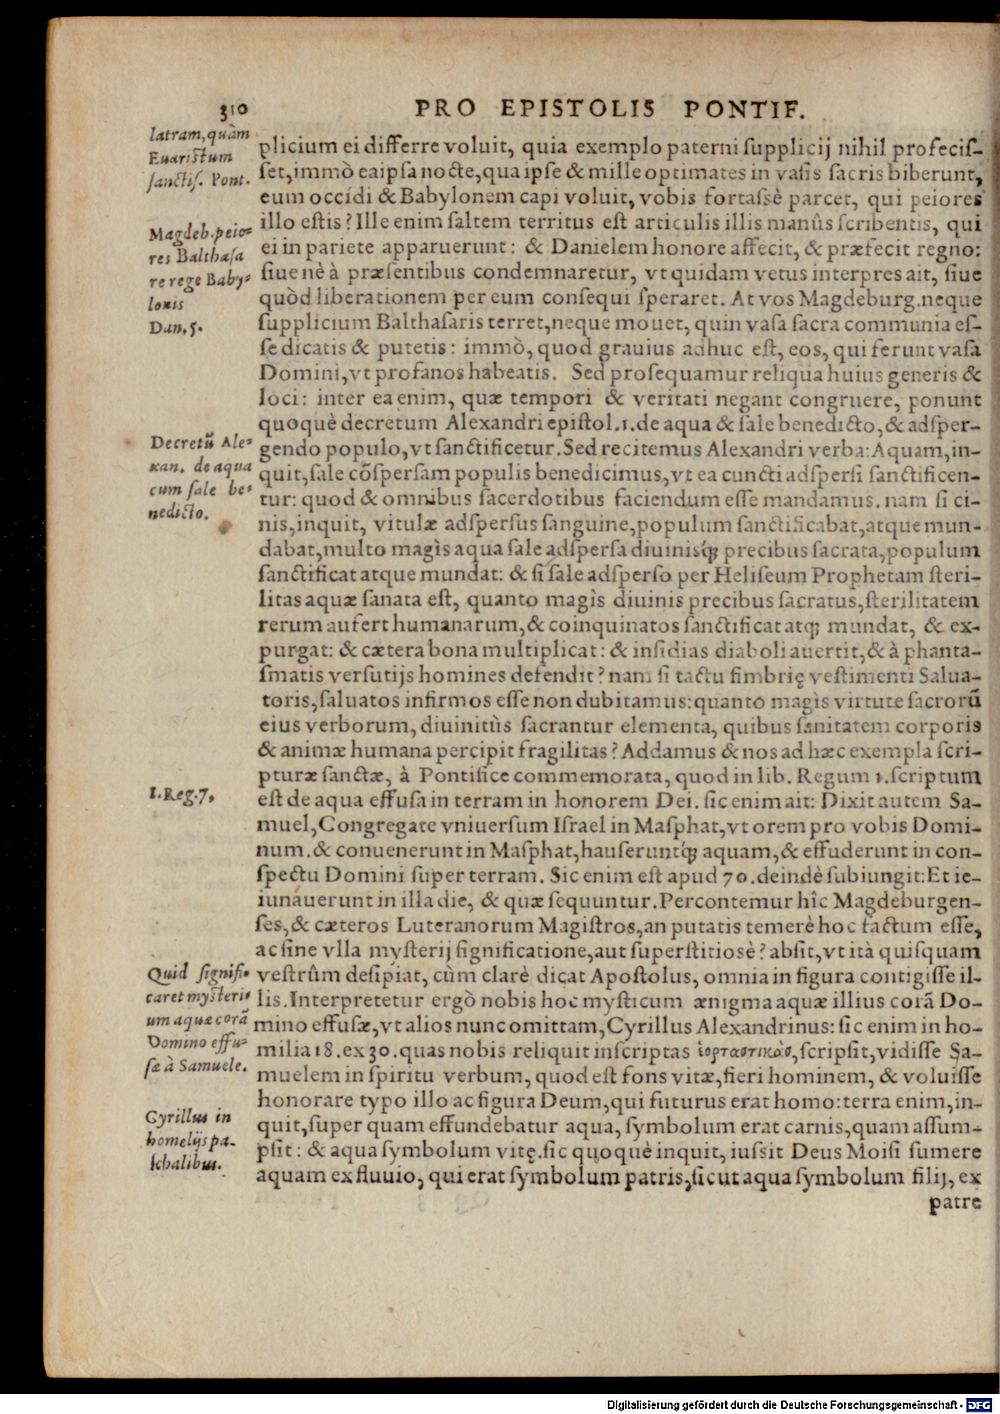 310
PRO EPISTOLIS PONTIF.
latram, quàm
Euaristum
sanctiſ. Pont.
Magdeb. peio-
res Balthaſa
re rege Baby-
lonis
Dan. 5.
Decretũ Ale-
xan. de aqua
cum ſale be-
nedicto.
1. Reg. 7.
Quid ſignifi-
caret myſteri-
um aquæ corã
Domino effu-
ſæ à Samuele.
Cyrillus in
homelijs pa-
ſchalibus.
plicium ei differre voluit, quia exemplo paterni ſupplicij nihil profeciſ-
ſet, immò ea ipſa nocte, qua ipſe & mille optimates in vaſis ſacris biberunt,
eum occidi & Babylonem capi voluit, vobis fortaſsè parcet, qui peiores
illo eſtis? Ille enim ſaltem territus eſt articulis illis manûs ſcribentis, qui
ei in pariete apparuerunt: & Danielem honore affecit, & præfecit regno:
ſiue nè à præſentibus condemnaretur, vt quidam vetus interpres ait, ſiue
quòd liberationem per eum conſequi ſperaret. At vos Magdeburg. neque
ſupplicium Balthaſaris terret, neque mouet, quin vaſa ſacra communia eſ-
ſe dicatis & putetis: immò, quod grauius adhuc eſt, eos, qui ferunt vaſa
Domini, vt profanos habeatis. Sed proſequamur reliqua huius generis &
loci: inter ea enim, quæ tempori & veritati negant congruere, ponunt
quoquè decretum Alexandri epiſtol. 1. de aqua & ſale benedicto, & adſper-
gendo populo, vt ſanctificetur. Sed recitemus Alexandri verba: Aquam, in-
quit, ſale cõſperſam populis benedicimus, vt ea cuncti adſperſi ſanctificen-
tur: quod & omnibus ſacerdotibus faciendum eſſe mandamus. nam ſi ci-
nis, inquit, vitulæ adſperſus ſanguine, populum ſanctificabat, atque mun-
dabat, multo magìs aqua ſale adſperſa diuiniſq́; precibus ſacrata, populum
ſanctificat atque mundat: & ſi ſale adſperſo per Heliſeum Prophetam ſteri-
litas aquæ ſanata eſt, quanto magìs diuinis precibus ſacratus, ſterilitatem
rerum aufert humanarum, & coinquinatos ſanctificat atq; mundat, & ex-
purgat: & cætera bona multiplicat: & inſidias diaboli auertit, & à phanta-
ſmatis verſutijs homines defendit? nam ſi tactu fimbrię veſtimenti Salua-
toris, ſaluatos infirmos eſſe non dubitamus: quanto magìs virtute ſacrorũ
eius verborum, diuinitùs ſacrantur elementa, quibus ſanitatem corporis
& animæ humana percipit fragilitas? Addamus & nos ad hæc exempla ſcri-
pturæ ſanctæ, à Pontifice commemorata, quod in lib. Regum 1. ſcriptum
eſt de aqua effuſa in terram in honorem Dei. ſic enim ait: Dixit autem Sa-
muel, Congregate vniuerſum Iſrael in Maſphat, vt orem pro vobis Domi-
num. & conuenerunt in Maſphat, hauſeruntq́; aquam, & effuderunt in con-
ſpectu Domini ſuper terram. Sic enim eſt apud 70. deindè ſubiungit: Et ie-
iunauerunt in illa die, & quæ ſequuntur. Percontemur hîc Magdeburgen-
ſes, & cæteros Luteranorum Magiſtros, an putatis temerè hoc factum eſſe,
ac ſine vlla myſterij ſignificatione, aut ſuperſtitiosè? abſit, vt ità quiſquam
veſtrûm deſipiat, cùm clarè dicat Apoſtolus, omnia in figura contigiſſe il-
lis. Interpretetur ergò nobis hoc myſticum ænigma aquæ illius corã Do-
mino effuſæ, vt alios nunc omittam, Cyrillus Alexandrinus: ſic enim in ho-
milia 18. ex 30. quas nobis reliquit inſcriptas ἑορταστικὰς, ſcripſit, vidiſſe Sa-
muelem in ſpiritu verbum, quod eſt fons vitæ, fieri hominem, & voluiſſe
honorare typo illo ac figura Deum, qui futurus erat homo: terra enim, in-
quit, ſuper quam effundebatur aqua, ſymbolum erat carnis, quam aſſum-
pſit: & aqua ſymbolum vitę. ſic quoquè inquit, iuſſit Deus Moiſi ſumere
aquam ex fluuio, qui erat ſymbolum patris, ſicut aqua ſymbolum filij, ex
patre
Digitalisierung gefördert durch die Deutsche Forschungsgemeinschaft - DFG